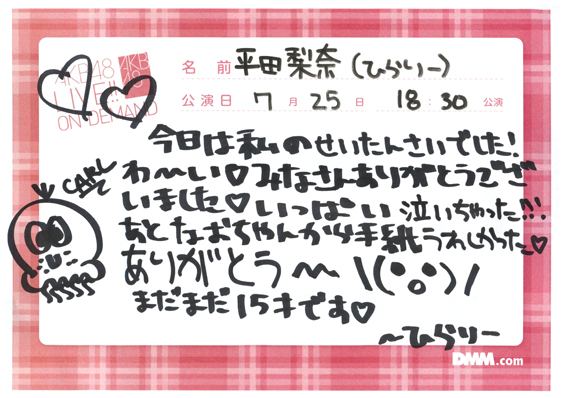 AKB48
LIVE!!
ON DEMAND
AKB
48
名前 平田梨奈(ひらりー)
公演日 7月25日 18:30公演
今日は私のせいたんさいでした!
わ〜い♡みなさんありがとうござ
いました♡いっぱい泣いちゃった!!!
あとなおちゃんから手紙うれしかった♡
ありがとう〜\(°o°)/
まだまだ15才です♡
〜ひらりー
CARL
DMM.com